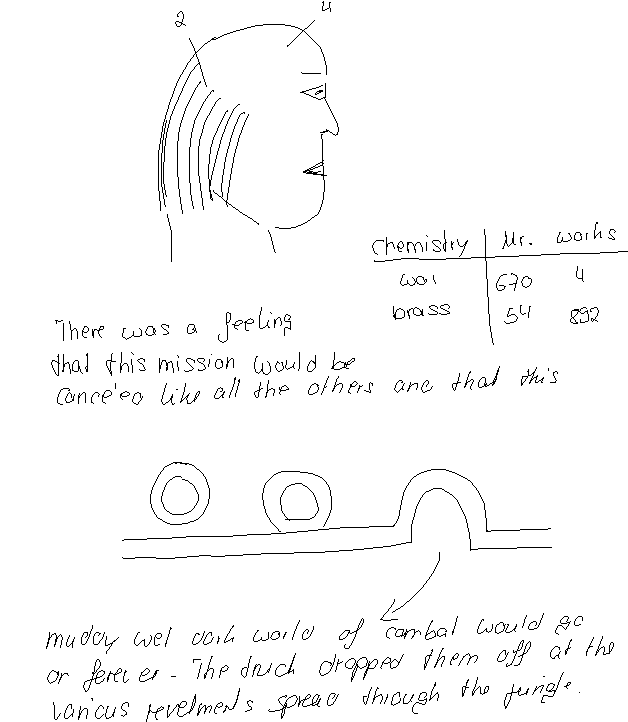 2 4
Chemistry Mr. works
wai 670 4
brass 54 892
There was a feeling
that this mission would be
cance'ed like all the others and that this
muddy wet dark world of combat would go
or forever - The truck dropped them off at the
various revetments spread through the jungle.